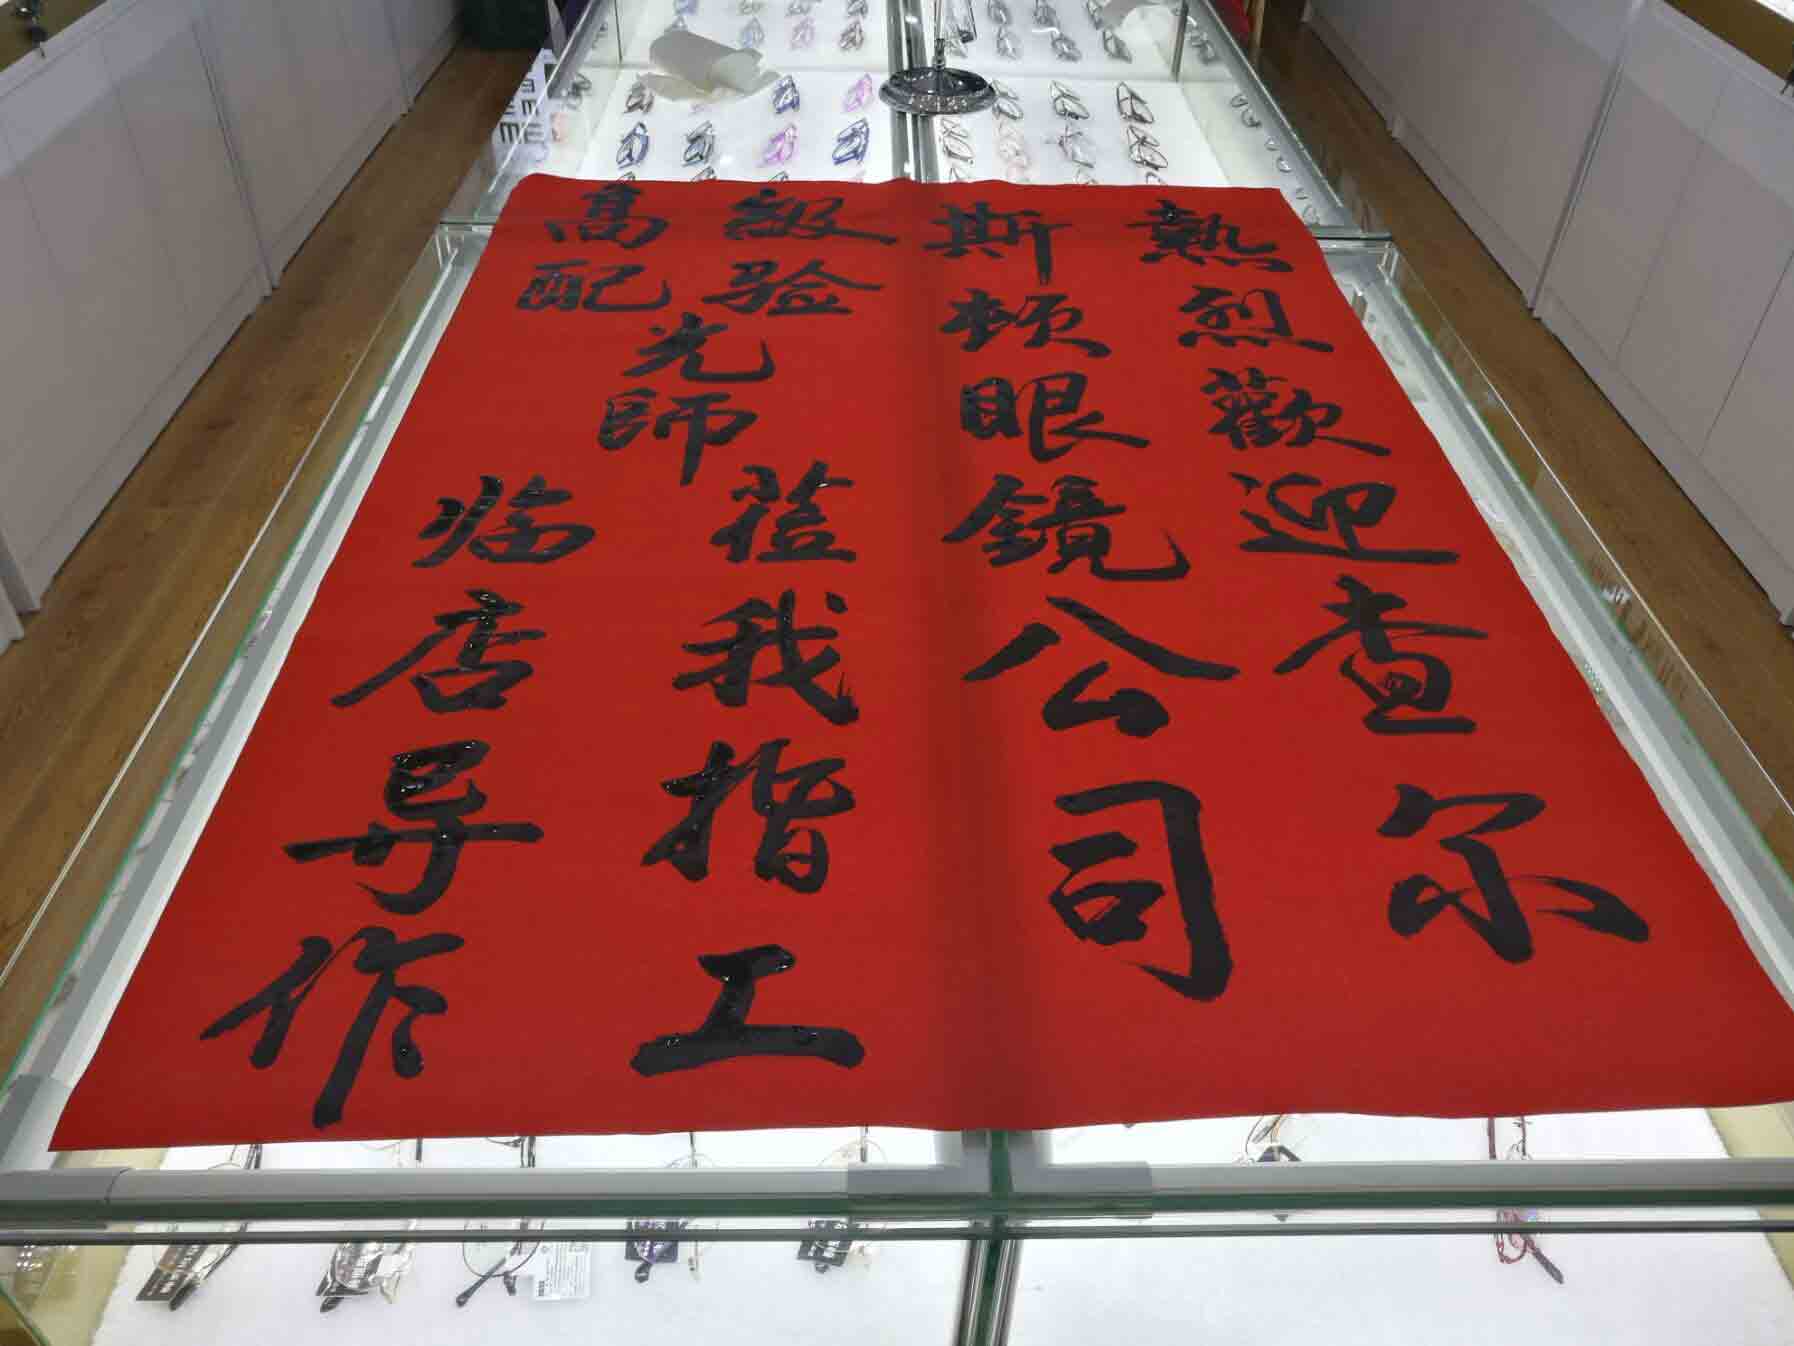 熱烈歡迎查尔
斯顿眼鏡公司
高級
配验
光師
莅临
我店
指导
工作